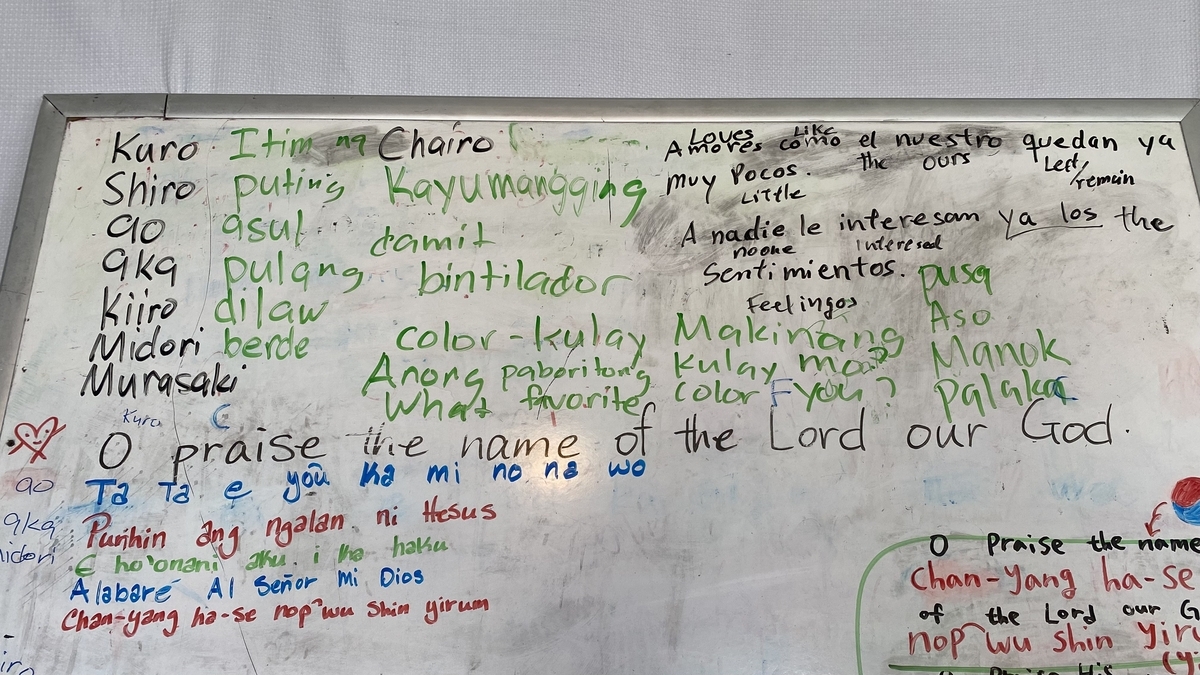 Kuro Itim ng Chairo
Shiro puting Kayumangging
ao asul damit
aka pulang bintilador
Kiiro dilaw
Midori berde color-kulay Makinang
Murasaki Anong paboritong kulay mo?
What favorite color F you?
Loves Like
Amores como el nuestro quedan ya
the ours Left/
remain
muy Pocos.
Little
A nadie le interesan ya los the
noone interesed
Sentimientos.
Feelingos
pusa
Aso
Manok
Palaka
Kuro C
O praise the name of the Lord our God.
ao Ta Ta e yoū ka mi no na wo
aka Purihin ang ngalan ni Hesus
midori E ho'onani aku i ka haku
Alabaré Al Señor mi Dios
Chan-yang ha-se nop wu shin yirum
O Praise the name
Chan-yang ha-se
of the Lord our G
nop wu shin yiru